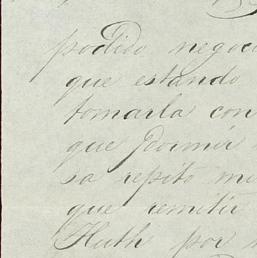 podido negoc
que estando
tomarla con
que
sa repito mi
que remitir
Huth por